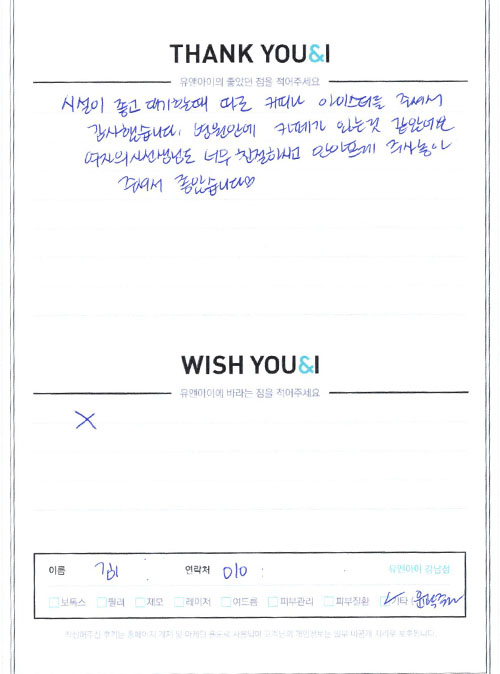 THANK YOU&I
유앤아이의 좋았던 점을 적어주세요
시설이 좋고 대기할때 따로 커피나 아이스티를 주셔서
감사했습니다. 병원안에 카페가 있는것 같았어요
여자의사선생님도 너무 친절하시고 안아프게 주사놓아
주셔서 좋았습니다♡
WISH YOU&I
유앤아이에 바라는 점을 적어주세요
X
이름 김 연락처 010 유앤아이 강남점
보톡스 필러 제모 레이저 여드름 피부관리 피부질환 기타 (